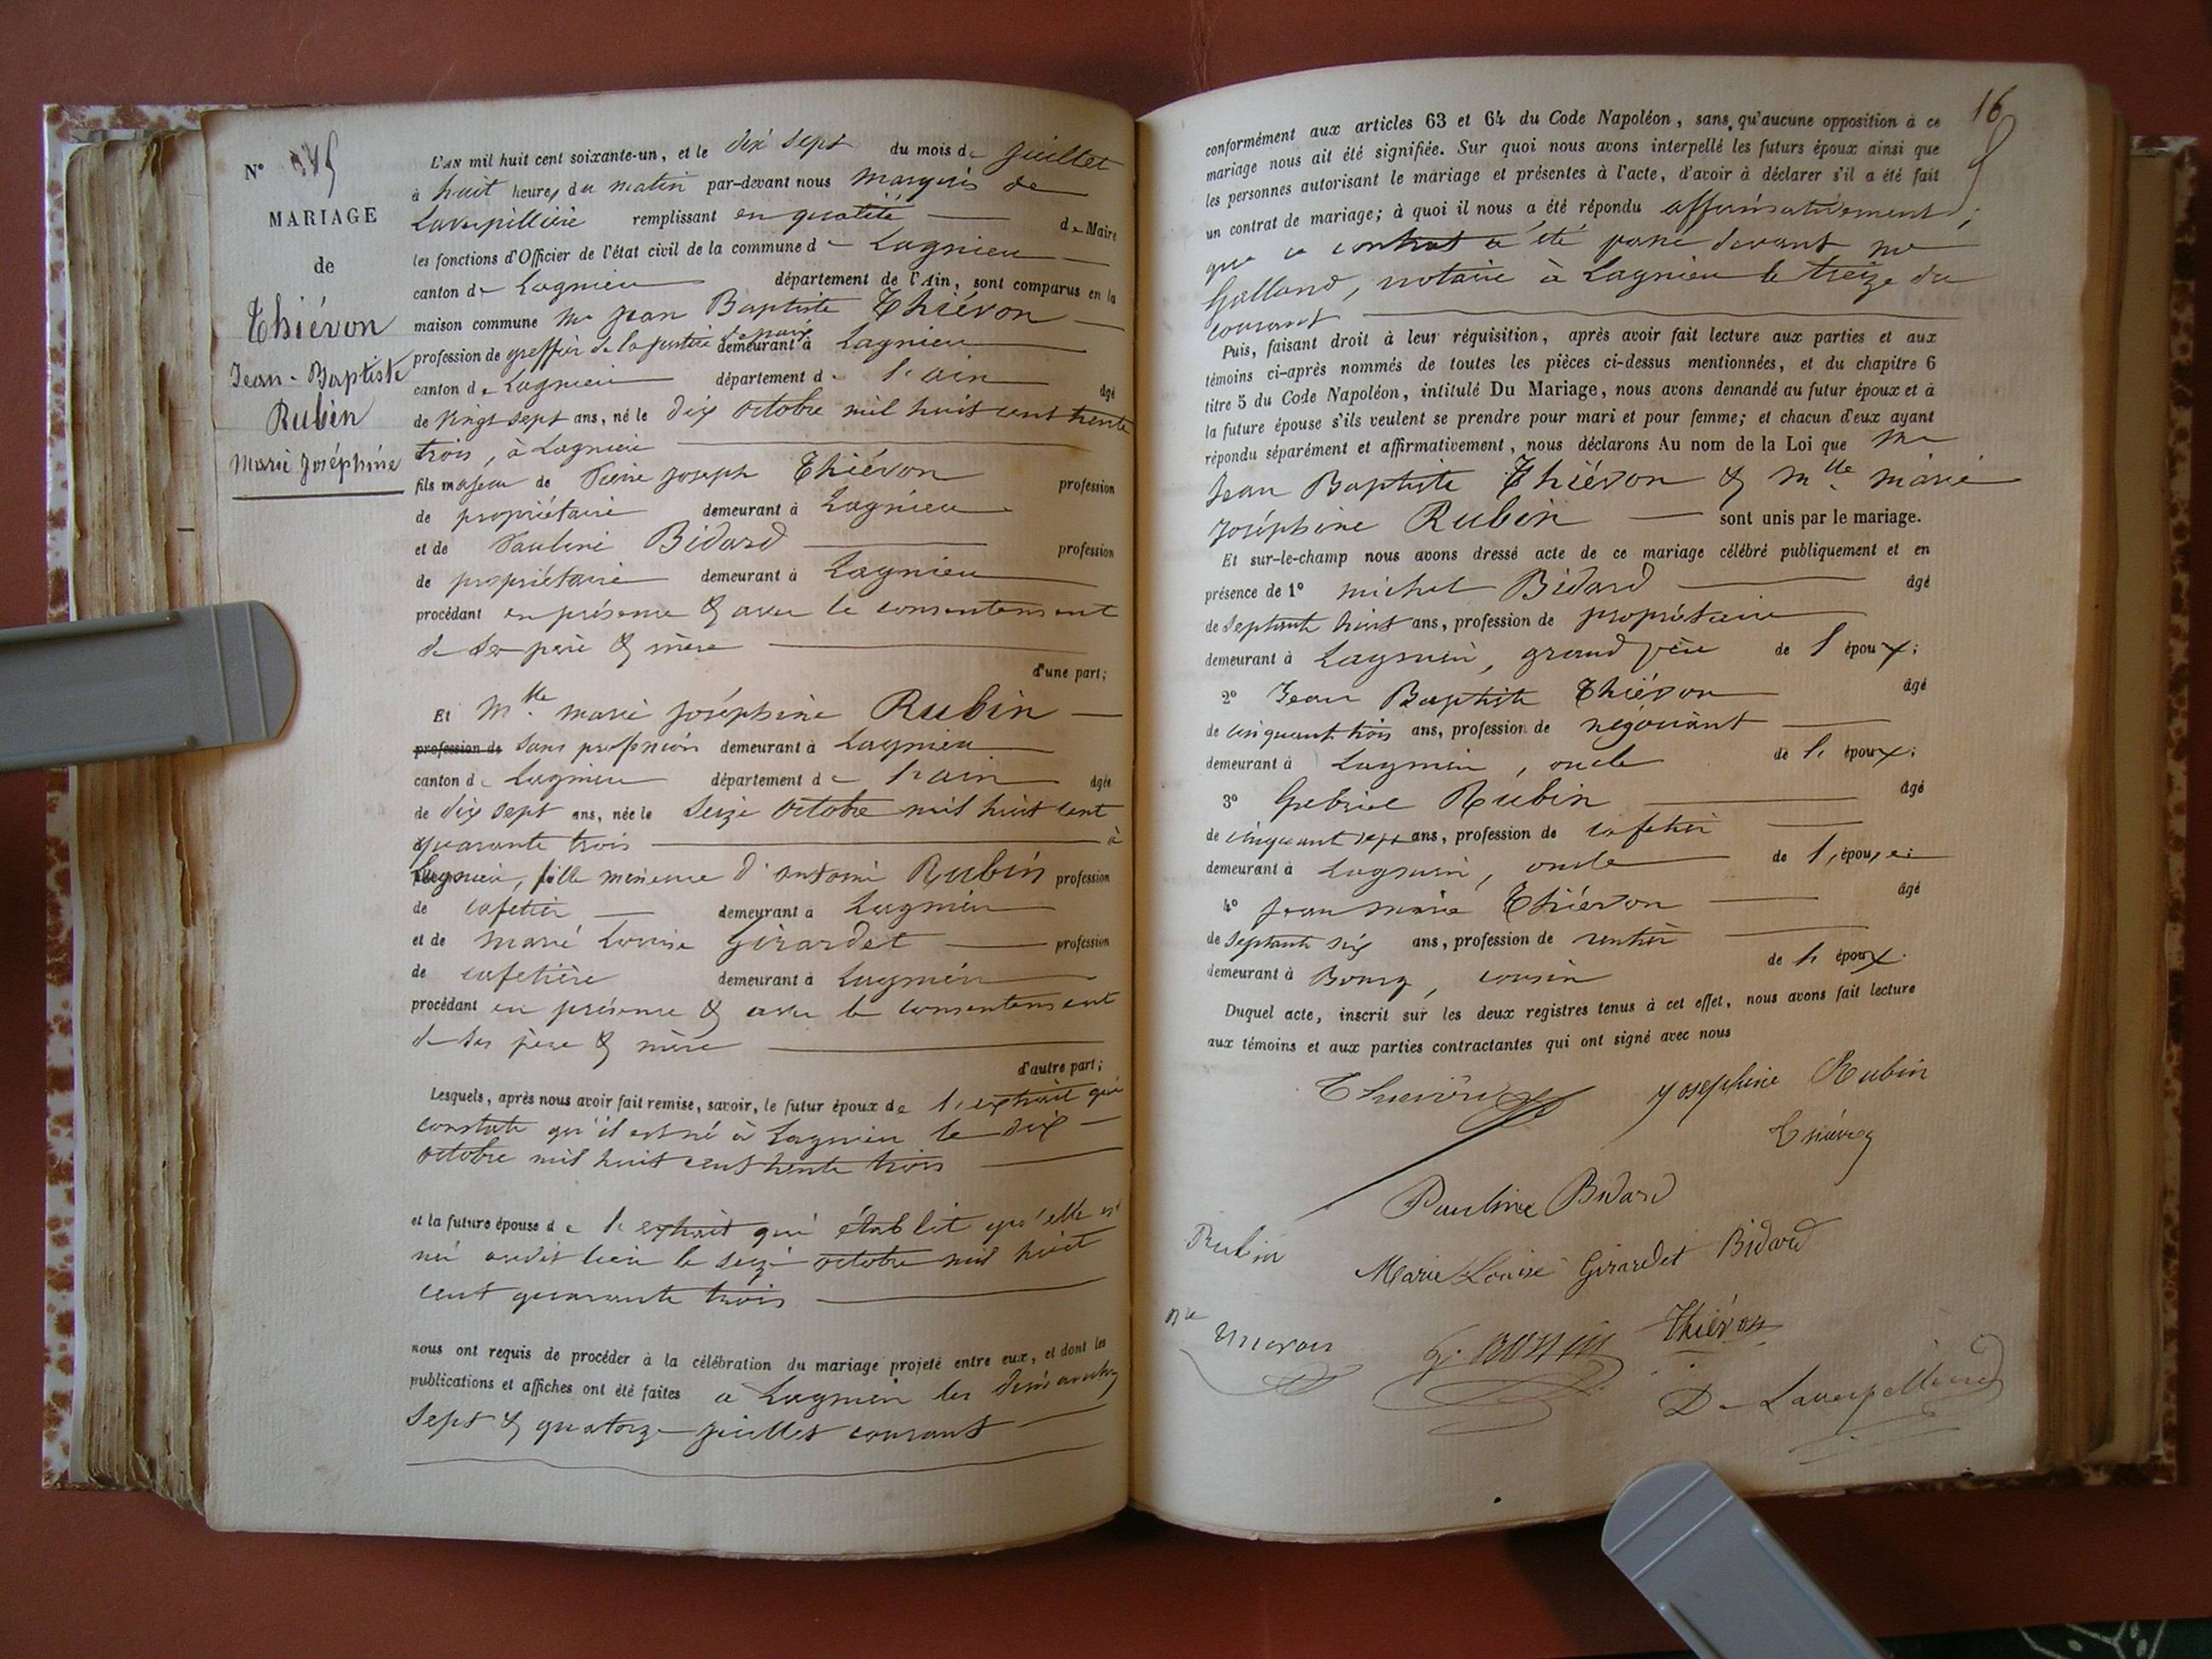 N°
MARIAGE
de
Thiévon
Jean-Baptiste
Rubin
Marie Joséphine
L'AN mil huit cent soixante-un, et le dix sept du mois de juillet
à huit heures du matin par-devant nous marquis de
Laverpillière remplissant en qualité de Maire
les fonctions d'Officier de l'état civil de la commune de Lagnieu
canton de Lagnieu département de l'Ain, sont comparus en la
maison commune Mr Jean Baptiste Thiévon
profession de greffier de la justice de paix demeurant à Lagnieu
canton de Lagnieu département de l'ain âgé
de vingt sept ans, né le dix octobre mil huit cent trente
trois, à Lagnieu
fils majeur de Pierre Joseph Thiévon profession
de propriétaire demeurant à Lagnieu
et de Pauline Bidard profession
de propriétaire demeurant à Lagnieu
procédant en présence & avec le consentement
de ses père & mère
d'une part;
Et Mlle marie Joséphine Rubin
profession de sans profession demeurant à Lagnieu
canton de Lagnieu département de l'ain âgée
de dix sept ans, née le seize octobre mil huit cent
quarante trois à
Lagnieu, fille mineure d'antoine Rubin profession
de cafetier demeurant à Lagnieu
et de marie Louise Girardet profession
de cafetière demeurant à Lagnieu
procédant en présence & avec le consentement
de ses père & mère
d'autre part;
Lesquels, après nous avoir fait remise, savoir, le futur époux de l'extrait qui
constate qu'il est né à Lagnieu le dix
octobre mil huit cent trente trois
et la future épouse de l'extrait qui établit qu'elle est
née audit lieu le seize octobre mil huit
cent quarante trois
nous ont requis de procéder à la célébration du mariage projeté entre eux, et dont les
publications et affiches ont été faites à Lagnieu les dimanches
sept & quatorze juillet courant
16
conformément aux articles 63 et 64 du Code Napoléon, sans qu'aucune opposition à ce
mariage nous ait été signifiée. Sur quoi nous avons interpellé les futurs époux ainsi que
les personnes autorisant le mariage et présentes à l'acte, d'avoir à déclarer s'il a été fait
un contrat de mariage; à quoi il nous a été répondu affirmativement,
que ce contrat a été passé devant me
Galland, notaire à Lagnieu le treize du
courant
Puis, faisant droit à leur réquisition, après avoir fait lecture aux parties et aux
témoins ci-après nommés de toutes les pièces ci-dessus mentionnées, et du chapitre 6
titre 5 du Code Napoléon, intitulé Du Mariage, nous avons demandé au futur époux et à
la future épouse s'ils veulent se prendre pour mari et pour femme; et chacun d'eux ayant
répondu séparément et affirmativement, nous déclarons Au nom de la Loi que Mr
Jean Baptiste Thiévon & Mlle marie
Joséphine Rubin sont unis par le mariage.
Et sur-le-champ nous avons dressé acte de ce mariage célébré publiquement et en
présence de 1° michel Bidard âgé
de septante huit ans, profession de propriétaire
demeurant à Lagnieu, grand père de l'époux;
2° Jean Baptiste Thiévon âgé
de cinquante trois ans, profession de négociant
demeurant à Lagnieu, oncle de l'époux;
3° Gabriel Rubin âgé
de cinquante sept ans, profession de cafetier
demeurant à Lagnieu, oncle de l'épouse;
4° Jean Marie Thiévon âgé
de septante six ans, profession de rentier
demeurant à Bourg, cousin de l'époux.
Duquel acte, inscrit sur les deux registres tenus à cet effet, nous avons fait lecture
aux témoins et aux parties contractantes qui ont signé avec nous
Thievon Josephine Rubin
Thiévon
Pauline Bidard
Rubin Marie Louise Girardet Bidard
G. Rubin Thiévon
De Laverpillière